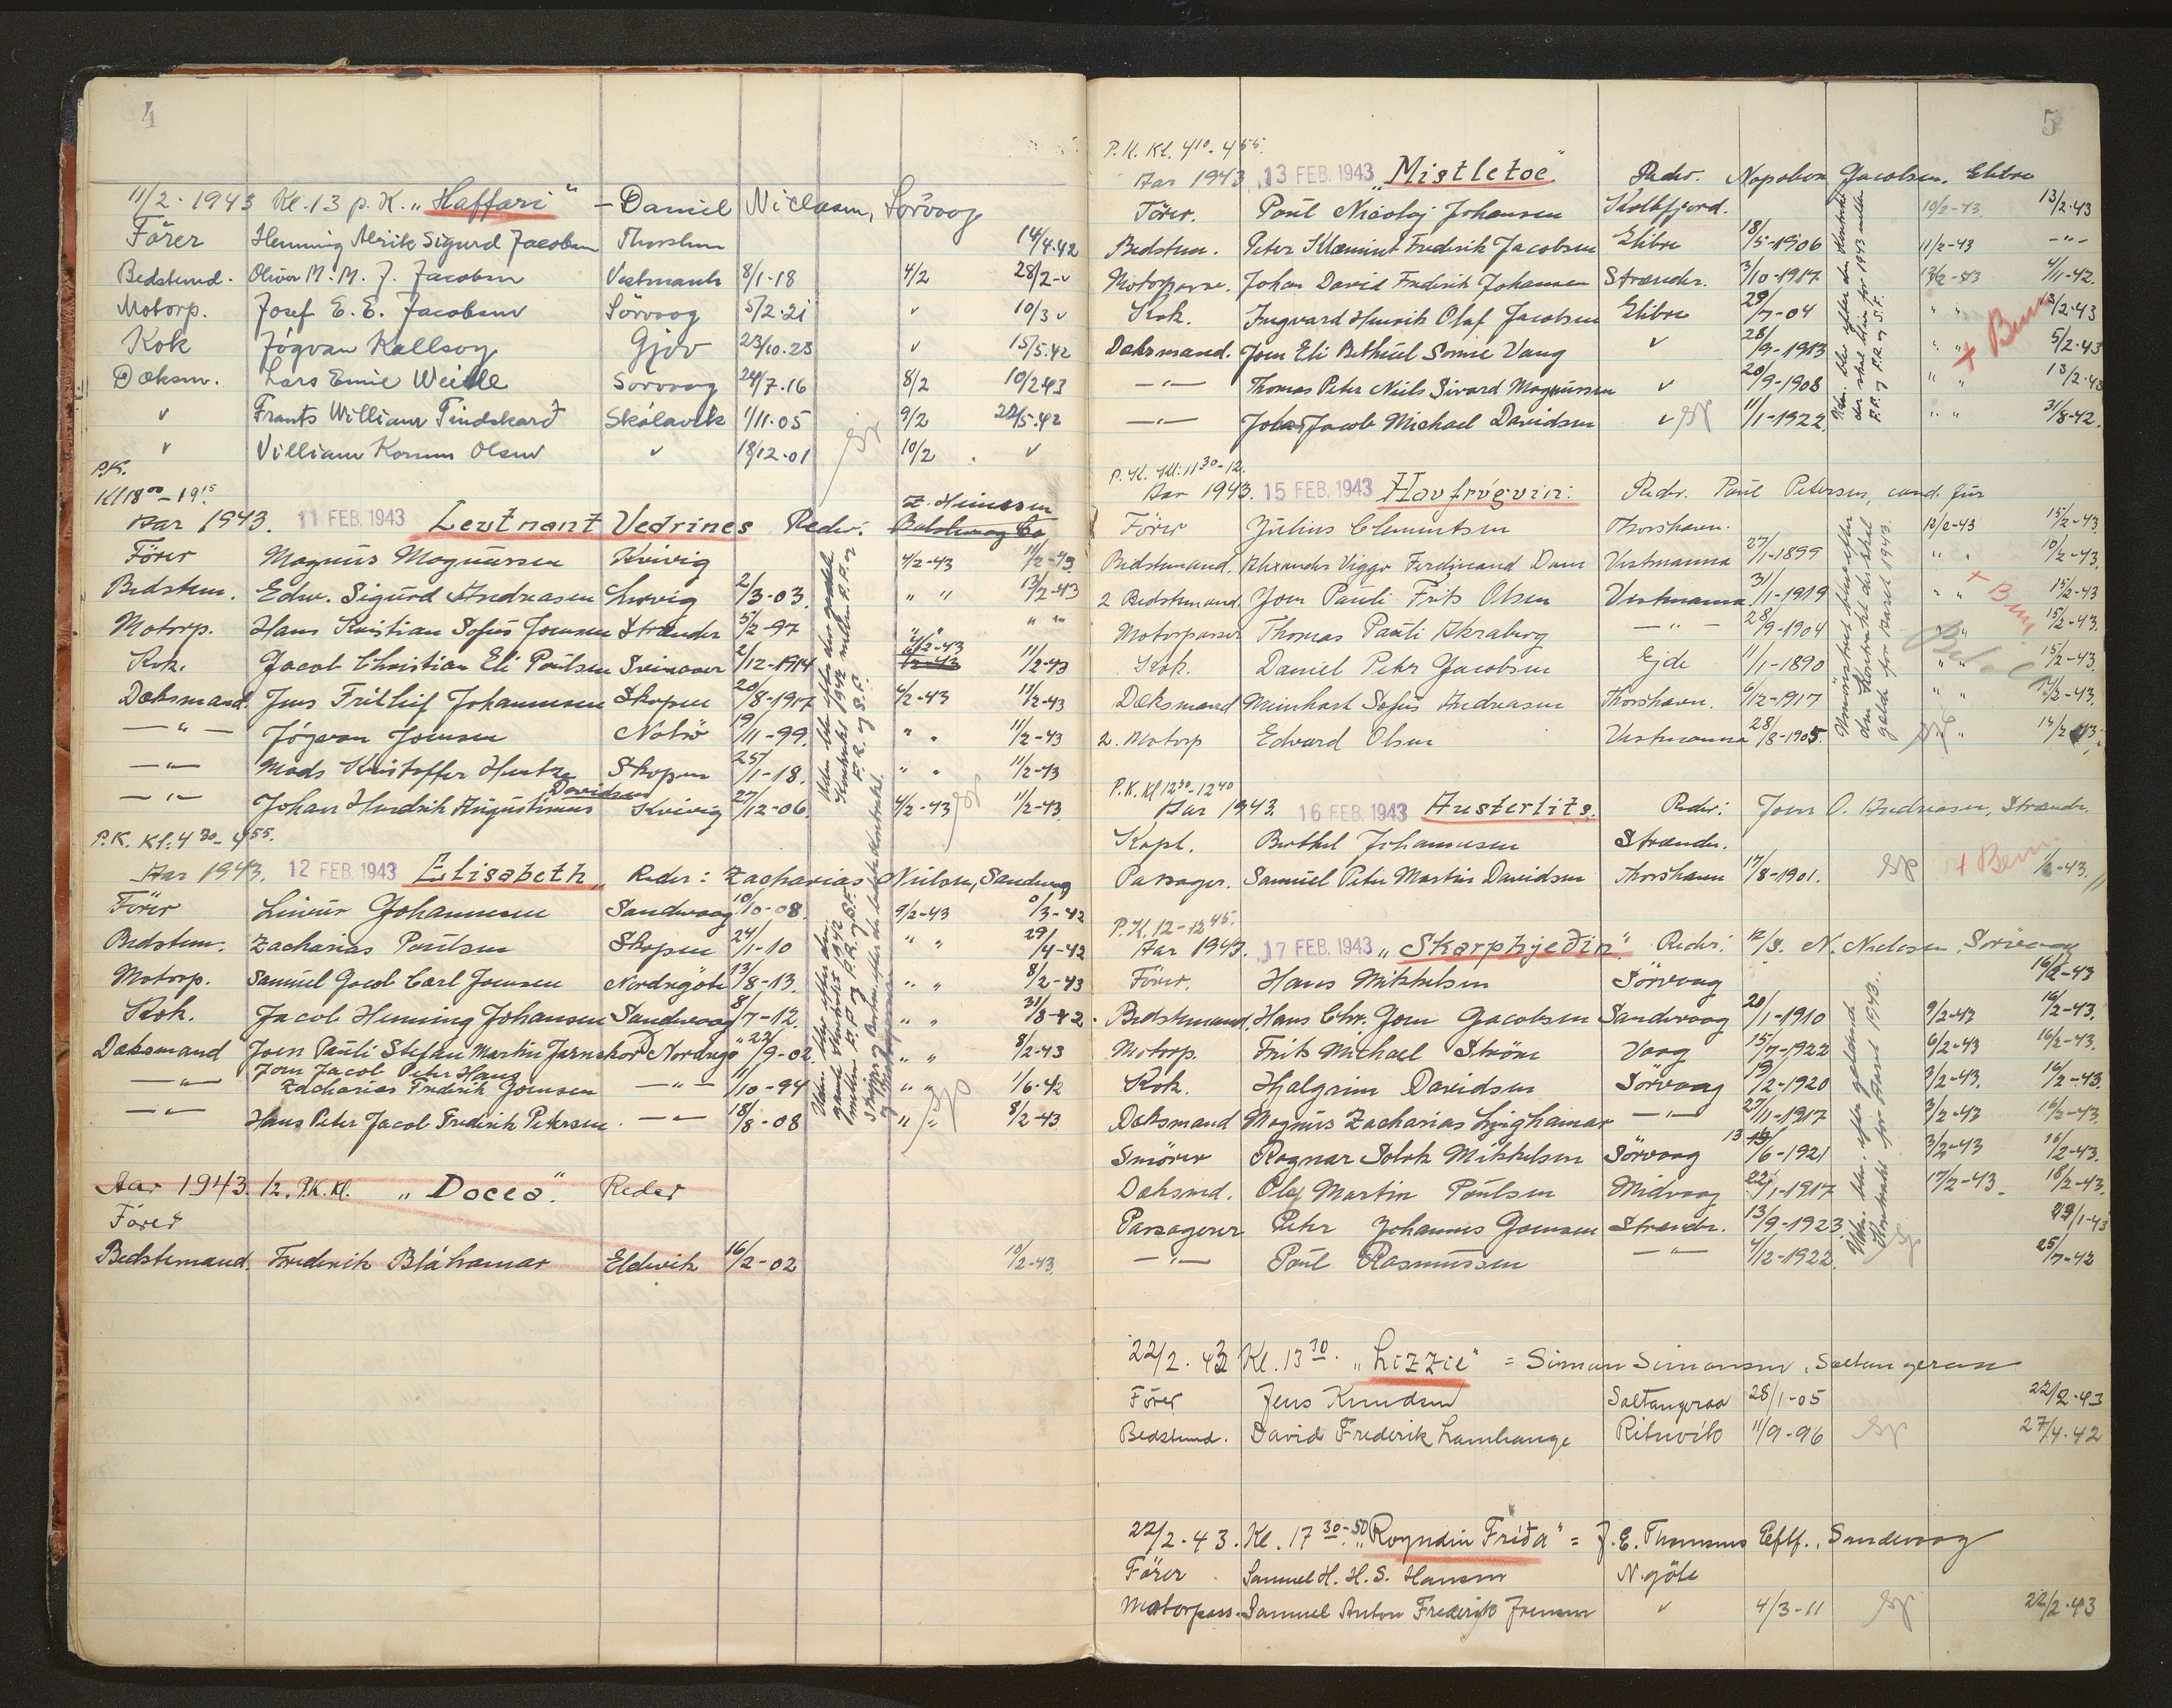 4
11/2 · 1943 Kl. 13 p. K. „Haffari" – Daniel Niclasen, Sörvaag
Förer Henning Alrik Sigurd Jacobsen Thorshvn 14/4.42
Bedstemd. Oliver M. M. J. Jacobsen Vestmanh 8/1-18 4/2 28/2-v
Motorp. Josef E. E. Jacobsen Sörvaag 5/2.21 v 10/3 v
Kok Jógvan Kallsoy Gjov 23/10.23 v 15/5.42
Dæksm. Lars Emil Weihe Sorvaag 24/7.16 8/2 10/2 43
v Frants William Tindskarð Skálavik 1/11.05 9/2 22/5.42
v Villiam Komm Olsen v 18/12.01 10/2 v
P.K.
Kl 18 00 – 19 15
Aar 1943. 11 FEB. 1943 Leutnant Vedrines Reder: Z. Heinesen
Förer Magnus Magnussen Kvivig 4/2-43 11/2-43
Bedstem. Edw. Sigurd Andreasen Lervig 2/3-03. " " 13/2-43
Motorp. Hans Kristian Sofus Joensen Strænder 5/2-97 " " " "
Kok. Jacob Christian Eli Poulsen 2/12-1914 4/2-43 11/2-43
Dæksmand Jens Frithif Johannesen Skopen 20/8-1917 4/2-43 11/2-43
— " — Jógvan Joensen Nolsö 19/11-99. " " 11/2-43
— " — Mads Kristoffer Hentze Skopen 25/1-18. " " 11/2-43
— " — Johan Hendrik Augustinus Davidsen Kvivig 27/12-06. 4/2-43 11/2-43
P.K. Kl. 4 30 – 4 55.
Aar 1943. 12 FEB. 1943 Elisabeth„ Reder: Zacharias Nielsen, Sandvaag
Förer Johannesen Sandvaag 10/10-08. 9/2-43 /3-42
Bedstem. Zacharias Poulsen Skopen 24/1-10 " " 29/4-42
Motorp. Samuel Jacob Carl Joensen Nordregöte 13/8-13. " " 8/2-43
Kok. Jacob Henning Johansen Sandvaag 8/7-12. " " 31/3-42.
Dæksmand Joen Pauli Stefan Martin Nordregö " 22/9-02 " " 8/2-43
— " — Joen Jacob Peter Hans Zacharias Frederik Joensen — " — 11/10-94 " " 1/6-42
— " — Hans Peter Jacob Frederik Petersen. — " — 18/8-08 " " 8/2-43
Aar 1943. /2. P.K. Kl. „Docea". Reder
Förer
Bedstemand. Frederik Bláhamar Eldevik 16/2-02 10/2-43
5
P.K. Kl. 4 10 - 4 55.
Aar 1943. 13 FEB. 1943 „Mistletoe" Reder. Napoleon Jacobsen. Elibre
Förer. Poul Nicolaj Johansen Kollefjord. 10/2-43 13/2-43
Bedstem. Peter Klæmint Fredrik Jacobsen Elibre 18/5-1906 11/2-43 — " —
Motorpasse. Johan David Fredrik Johansen Strænder. 3/10-1917 12/2-43 4/11-42.
Kok. Ingvard Henrik Olaf Jacobsen Elibre 29/7-04 " " 13/2-43
Dæksmand. Joen Eli Bethuel Sonne Vang v 28/9-1913 " " 5/2-43
— " — Thomas Peter Niels Sivard Magnussen v 20/9-1908 " " 13/2-43
— " — Johan Jacob Michael Davidsen v 11/1-1922. " " 31/8-42.
+ Bem
P.K. Kl: 11 30 - 12.
Aar 1943. 15 FEB. 1943 Havfrúgvin: Reder. Poul Petersen, cand. jur
Förer Julius Clementsen Thorshavn. 12/2-43 15/2-43.
Bedstemand. Alexander Viggo Ferdinand Dam Vestmanna 27/1-1899 " " 10/2-43.
2 Bedstemand. Joen Pauli Frits Olsen Vestmanna 31/1-1919 " " 15/2-43
Motorpasser Thomas Pauli Akraberg — " — 28/9-1904 " " 15/2-43.
Kok. Daniel Peter Jacobsen Ejde 11/1-1890 " " 15/2-43.
Dæksmand Meinhart Sofus Andreasen Thorshavn. 6/12-1917 " " 11/2-43.
2. Motorp Edvard Olsen Vestmanna 28/8-1905. " 15/2 43
+ Bem.
P.K. Kl 12 30 - 12 40
Aar 1943. 16 FEB. 1943 Austerlits. Reder: Joen O. Andreasen, Strænder
Kapt. Berthel Johannesen Strænder.
Passager. Samuel Peter Martin Davidsen Thorshavn 17/8-1901. + Bem. /2-43.
P.K. 12 - 12 45.
Aar 1943. 17 FEB. 1943 „Skarphjeðin". Reder: N. Niclasen, Sörvaag
Förer. Hans Mikkelsen Sörvaag 16/2-43
Bedstemand. Hans Chr. Joen Jacobsen Sandvaag 20/1-1910 9/2-43 16/2-43.
Motorp. Frits Michael Ström Vaag 15/7-1922 6/2-43 16/2-43.
Kok. Hjalgrim Davidsen Sörvaag 19/2-1920 3/2-43. 16/2-43.
Dæksmand Magnus Zacharias Lynghamar — " — 27/11-1917 3/2-43 16/2-43.
Smörer Ragnar Solok Mikkelsen Sörvaag 13/6-1921 3/2-43 16/2-43.
Dæksmd. Olaf Martin Poulsen Midvaag 22/1-1917 17/2-43. 18/2-43.
Passagerer Peter Johannes Joensen Strænder. 13/9-1923. 29/1-43
— " — Poul Rasmussen — " — 4/12-1922. 25/7-42
22/2. 43 Kl. 13 30. „Lizzie" = Simun Simonsen, Saltangeraa
Förer Jens Knudsen Saltangeraa 28/1-05 22/2-43
Bedstemd. David Frederik Lamhauge Rituvik 11/9-96 27/4.42
22/2.43. Kl. 17 30-50 „Royndin Friða" = J. E. Thomsens Eftf., Sandevaag
Förer Samuel H. H. S. Hansen N. göte
Motorpass. Samuel Anton Frederik Joensen v 4/3-11 22/2.43